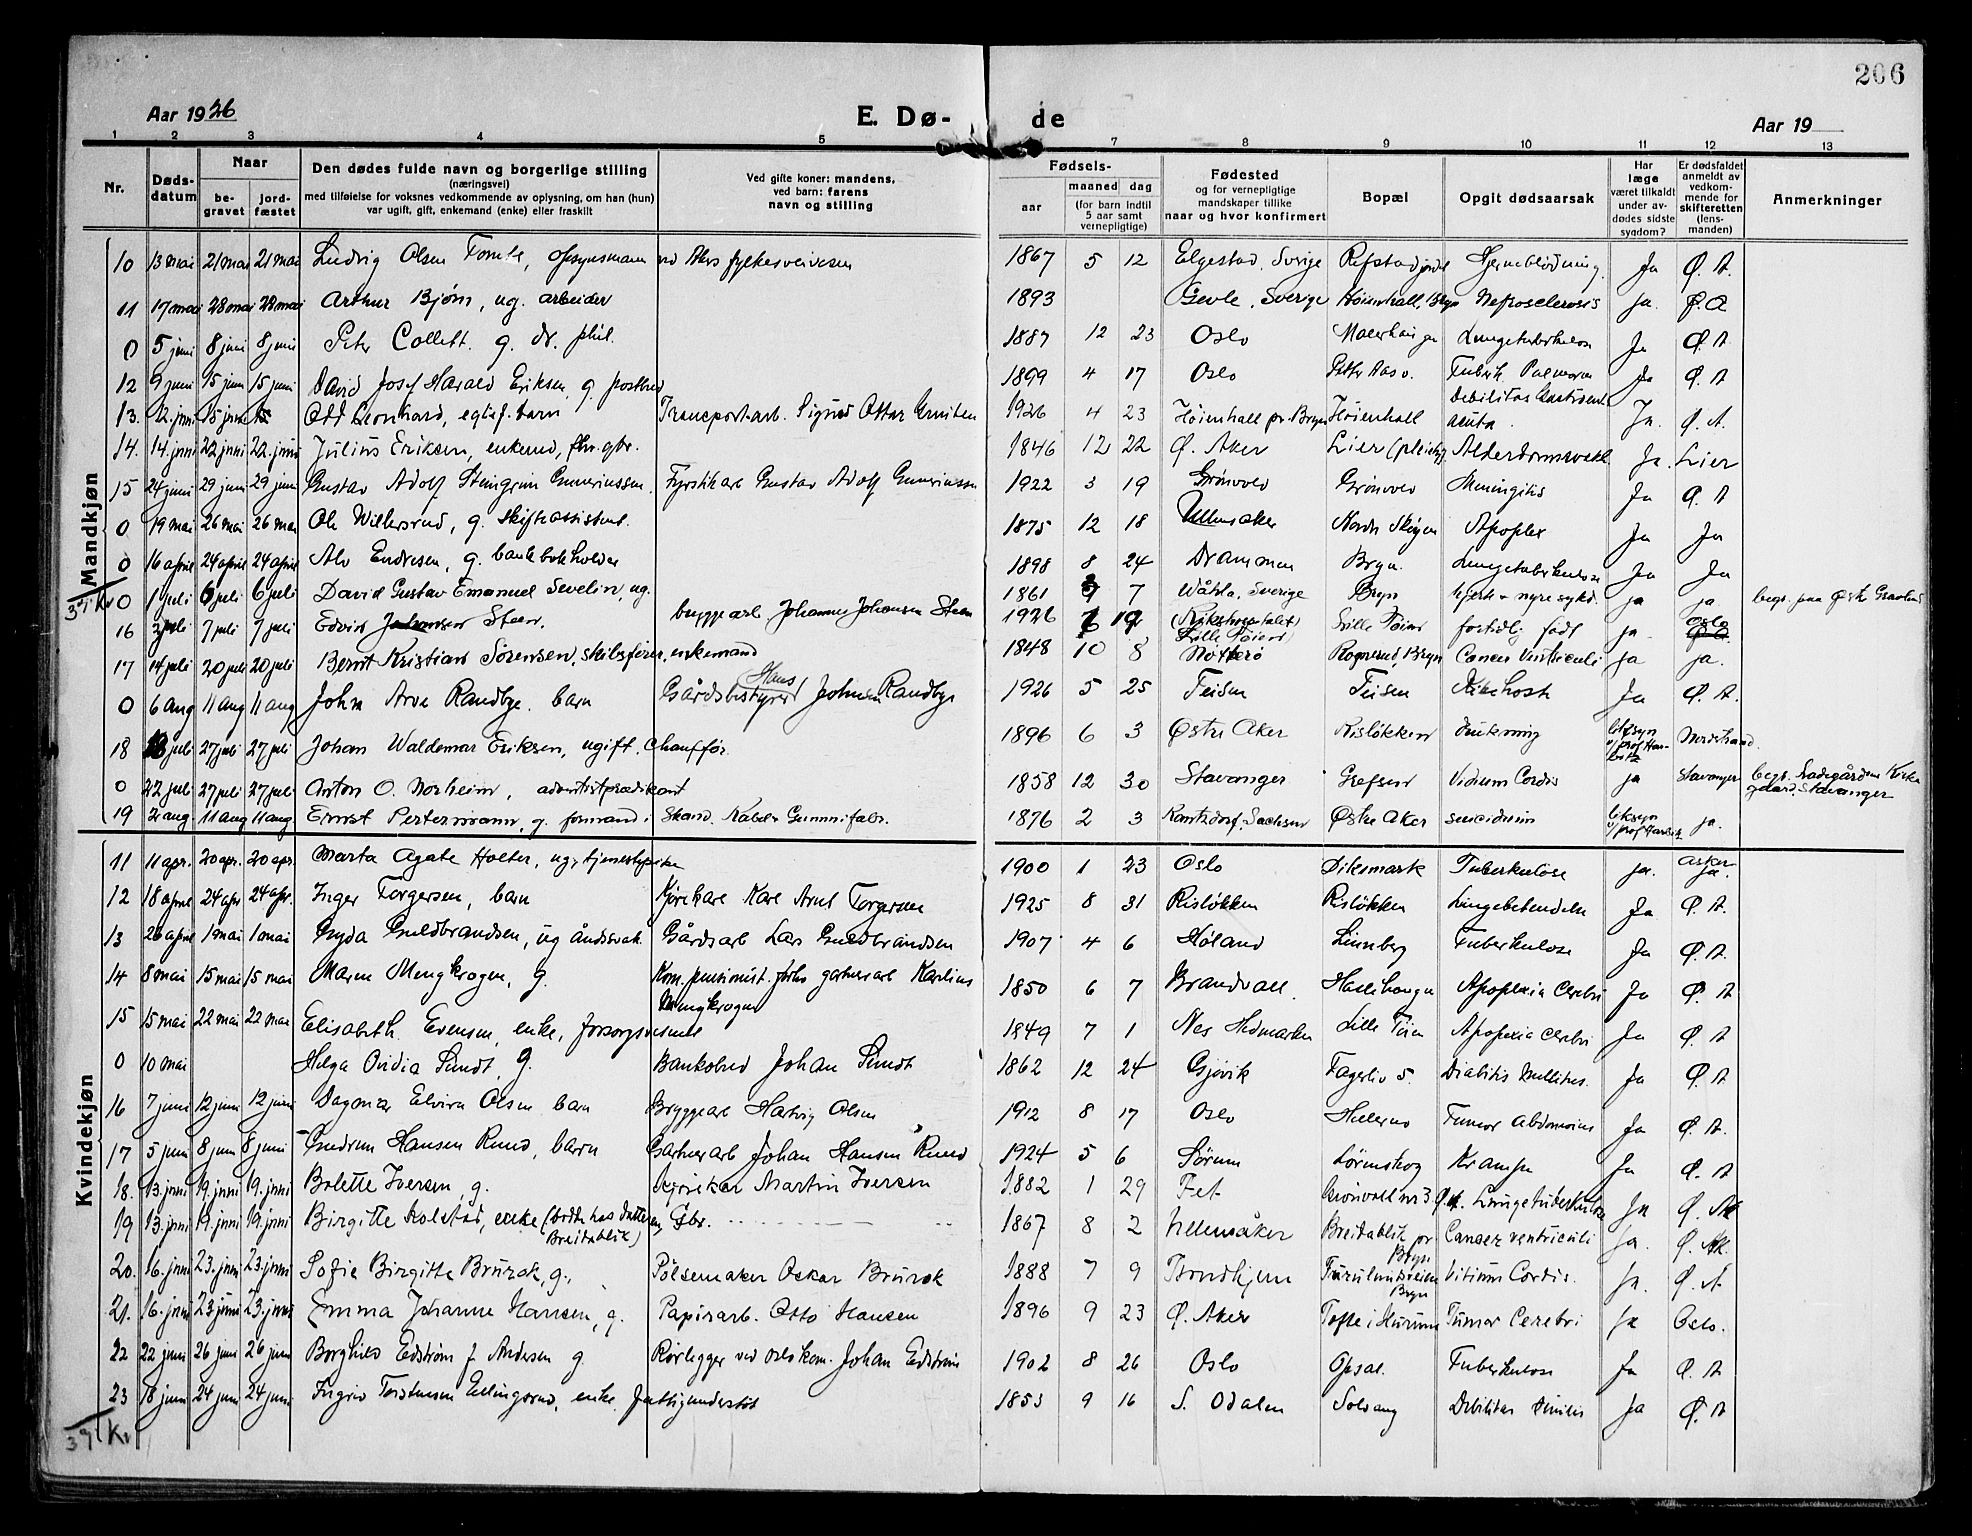 206
Aar 1926 E. Dø- de Aar 19
1 2 3 4 5 7 8 9 10 11 12 13
Nr. Døds-datum Naar be-gravet jord-fæstet Den dødes fulde navn og borgerlige stilling (næringsvei) med tilføielse for voksnes vedkommende av oplysning, om han (hun) var ugift, gift, enkemand (enke) eller fraskilt Ved gifte koner: mandens, ved barn: farens navn og stilling Fødsels- aar maaned dag (for barn indtil 5 aar samt vernepligtige) Fødested og for vernepligtige mandskaper tillike naar og hvor konfirmert Bopæl Opgit dødsaarsak Har læge været tilkaldt under av-dødes sidste sygdom? Er dødsfaldet anmeldt av vedkom-mende for skifteretten (lens-manden) Anmerkninger
Mandkjøn
10 13 mai 21 mai 21 mai Ludvig Olsen Tomte, opsynsmann ved Akers fylkesveivesen 1867 5 12 Elgestad, Sverige Refstad Hjerneblødning Ja Ø. A.
11 17 mai 28 mai 28 mai Arthur Bjørn, ug. arbeider 1893 Gevle, Sverige Høienhall, Bryn Nefrosclerosis ja. Ø. A
0 5 juni 8 juni 8 juni Peter Collett. g. dr. phil. 1887 12 23 Oslo Lungetuberkulose Ja Ø. A
12 9 juni 15 juni 15 juni David Josef Harald Eriksen, g. postbud 1899 4 17 Oslo Tuberk. Pulmonum Ja Ø. A
13. 12. juni 15 juni 15 Odd Leonhard, egtef. barn Transportarb. Sigurd Ottar 1926 4 23 Høienhall pr. Bryn Høienhall Debilitas Gastroent. acuta. Ja. Ø. A.
14. 14. juni 22 juni 22. juni Julius Eriksen, enkemd, fhv. gbr. 1846 12 22 Ø. Aker Lier (pleiehj). Alderdomssvakh. Ja. Lier
15 24 juni 29 juni 29 juni Gustav Adolf Steingrim Gunerinssen. Fyrstikarb Gustav Adolf Gunerinssen 1922 3 19 Grønvold Grønvold Meningitis Ja Ø. A
0 19 mai 26 mai 26 mai Ole Willersrud, g. skifteassistent. 1875 12 18 Ullensaker Nordre Skøyen Apoplex Ja Ja
0 16 april 24 april 24 april Alv Endresen, g. bankbokholder 1898 8 24 Drammen Bryn. Lungetuberkulose Ja Ja
37 Kv
0 1 juli 6 juli 6 juli David Gustav Emanuel Sevelin, ug. 1861 3 7 Wåtsla, Sverige Bryn hjerte- nyresykd. ja ja begr. paa Østre Gravlund
16 2 juli 7 juli 7 juli Edvin Johansen Steen. bryggearb Johannes Johansen Steen 1926 (Rikshospitalet) Lille Tøien Lille Tøien fortidlig født ja Oslo
17 14 juli 20 juli 20 juli Bernt Kristian Sørensen, skibsfører, enkemand 1848 10 8 Nøtterø Rognerud, Bryn Cancer Ventriculi Ja ja.
0 6 aug 11 aug 11 aug John Arve Randbye. barn Gårdsbestyrer Hans Johnsen Randbye 1926 5 25 Teisen Teisen Kikhoste Ja Ø. A.
18 juli 27 juli 27 juli Johan Waldemar Eriksen, ugift, Chauffør. 1896 6 3 Østre Aker Risløkken drukning liksyn v/prof Har-bitz Nordstrand.
0 22 juli 27 juli 27 juli Anton O. Norheim, adventistprædikant 1858 12 30 Stavanger Grefsen Vidium Cordis ja Stavanger begr. Ladegården Kirkegård. Stavanger
19 2 aug 11 aug 11 aug Ernst Pertermann, g. formand i Skand. Kabel & Gummifabr. 1876 2 3 Sachsen Østre Aker suicidium liksyn v/prof Harbitz ja.
Kvindekjøn
11 11 apr. 20 apr. 20 apr. Marta Agate Holter, ug, tjenestepike 1900 1 23 Oslo Dikemark Tuberkulose ja. Asker ja.
12 18 april 24 apr 24 apr. Inger Torgersen, barn Kjørekarl Karl Arnt Torgersen 1925 8 31 Risløkken Risløkken Lungebetendelse Ja Ø. A.
13 26 april 1 mai 1 mai Gyda Guldbrandsen, ug åndssvak. Gårdsarb Lars Guldbrandsen 1907 4 6 Høland Linnberg Tuberkulose Ja Ø. A.
14 8 mai 15 mai 15 mai Maren Mengkrogen, g. Kom. pensionist. forhv gartnerarb Karelius Mengkrogen 1850 6 7 Brandvall. Haslehaugen Apoplexia Cerebri Ja Ø. A
15 15 mai 22 mai 22 mai Elisabeth Evensen, enke, forsorgsvesenet 1849 7 1 Nes Hedmarken Lille Tøien Apoplexia Cerebri Ja Ø. A
0 10 mai Helga Ovidia Sundt, g. Bankobud Johan Sundt 1862 12 24 Gjøvik Fagerliv 5. Diabitis Mellitus. Ja Ø. A
16 7 juni 12 juni 12 juni Dagmar Elvira Olsen barn Bryggearb Hartvig Olsen 1912 8 17 Oslo Hellerud Tumor Abdominis Ja Ø. A.
17 5 juni 8 juni 8 juni Gudrun Hansen Ruud, barn Gartnerarb Johan Hansen Ruud 1924 5 6 Sørum Lørenskog Krampe Ja Ø. A
18. 13. juni 19. juni 19. juni Bolette Iversen, g. Kjørekar Martin Iversen 1882 1 29 Fet Grønvoll nr 3. Ø. A. Lungetuberkulose Ja Ø. Ak
19 13. juni 19. juni 19. juni Birgitte Kolstad, enke (bodde hos datteren, Breidablik) Gbr. 1867 8 2 Ullensåker Breidablik pr Bryn Cancer ventriculi Ja. Ø. Ak.
20. 16. juni 23. juni 23. juni Sofie Birgitte Brurok, g., Pølsemaker Oskar Brurok 1888 7 9 Trondhjem Furulundsveien Bryn Vitium Cordis. Ja. Ø. A
21. 16. juni 23 juni 23. juni Emma Johanne Hansen, g. Papirarb. Otto Hansen 1896 9 23 Ø. Aker Tofte i Hurum Tumor Cerebri Ja Oslo.
22 22 juni 26 juni 26 juni Borghild Edstrøm f. Andersen g. Rørlegger ved Oslo kom. Johan Edstrøm 1902 8 26 Oslo Opsal. Tuberkulose Ja Ø. A
23 18 juni 24 juni 24 juni Ingrid Torstensen Ellingsrud, enke, fattigunderstøt 1853 9 16 S. Odalen Solvang Debilitas Senilis Ja Ø. A
39 Kv